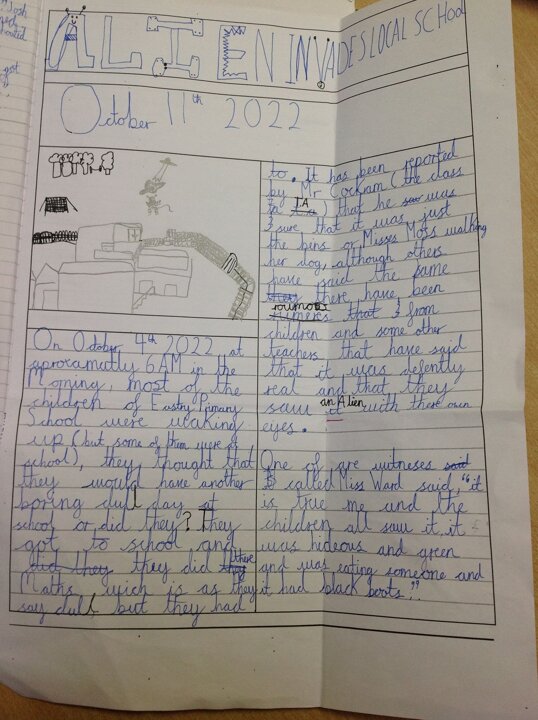 ALIEN INVADES LOCAL SCHOOL
October 11th 2022
On October 4th 2022 at
aproxamatly 6AM in the
Morning, most of the
children of Eastry Primary
School were waking
up (but some of them were at
school), they thought that
they would have another
boring dull day at
school or did they? They
got to school and
did they they did there
Maths wich is as they
say dull, but they had
to. It has been reported
by Mr Cockram (the class
TA) that he saw was
sure that it was just
the bins or Misses Moss walking
her dog, although others
have said the same
they there have been
roumors
rumers that from
children and some other
teachers that have said
that it was defently
real and that they
saw it an Alien with there own
eyes.
One of are witneses said
called Miss Ward said, "it
is true me and the
children all saw it, it
was hideous and green
and was eating someone and
it had black boots".
Josh